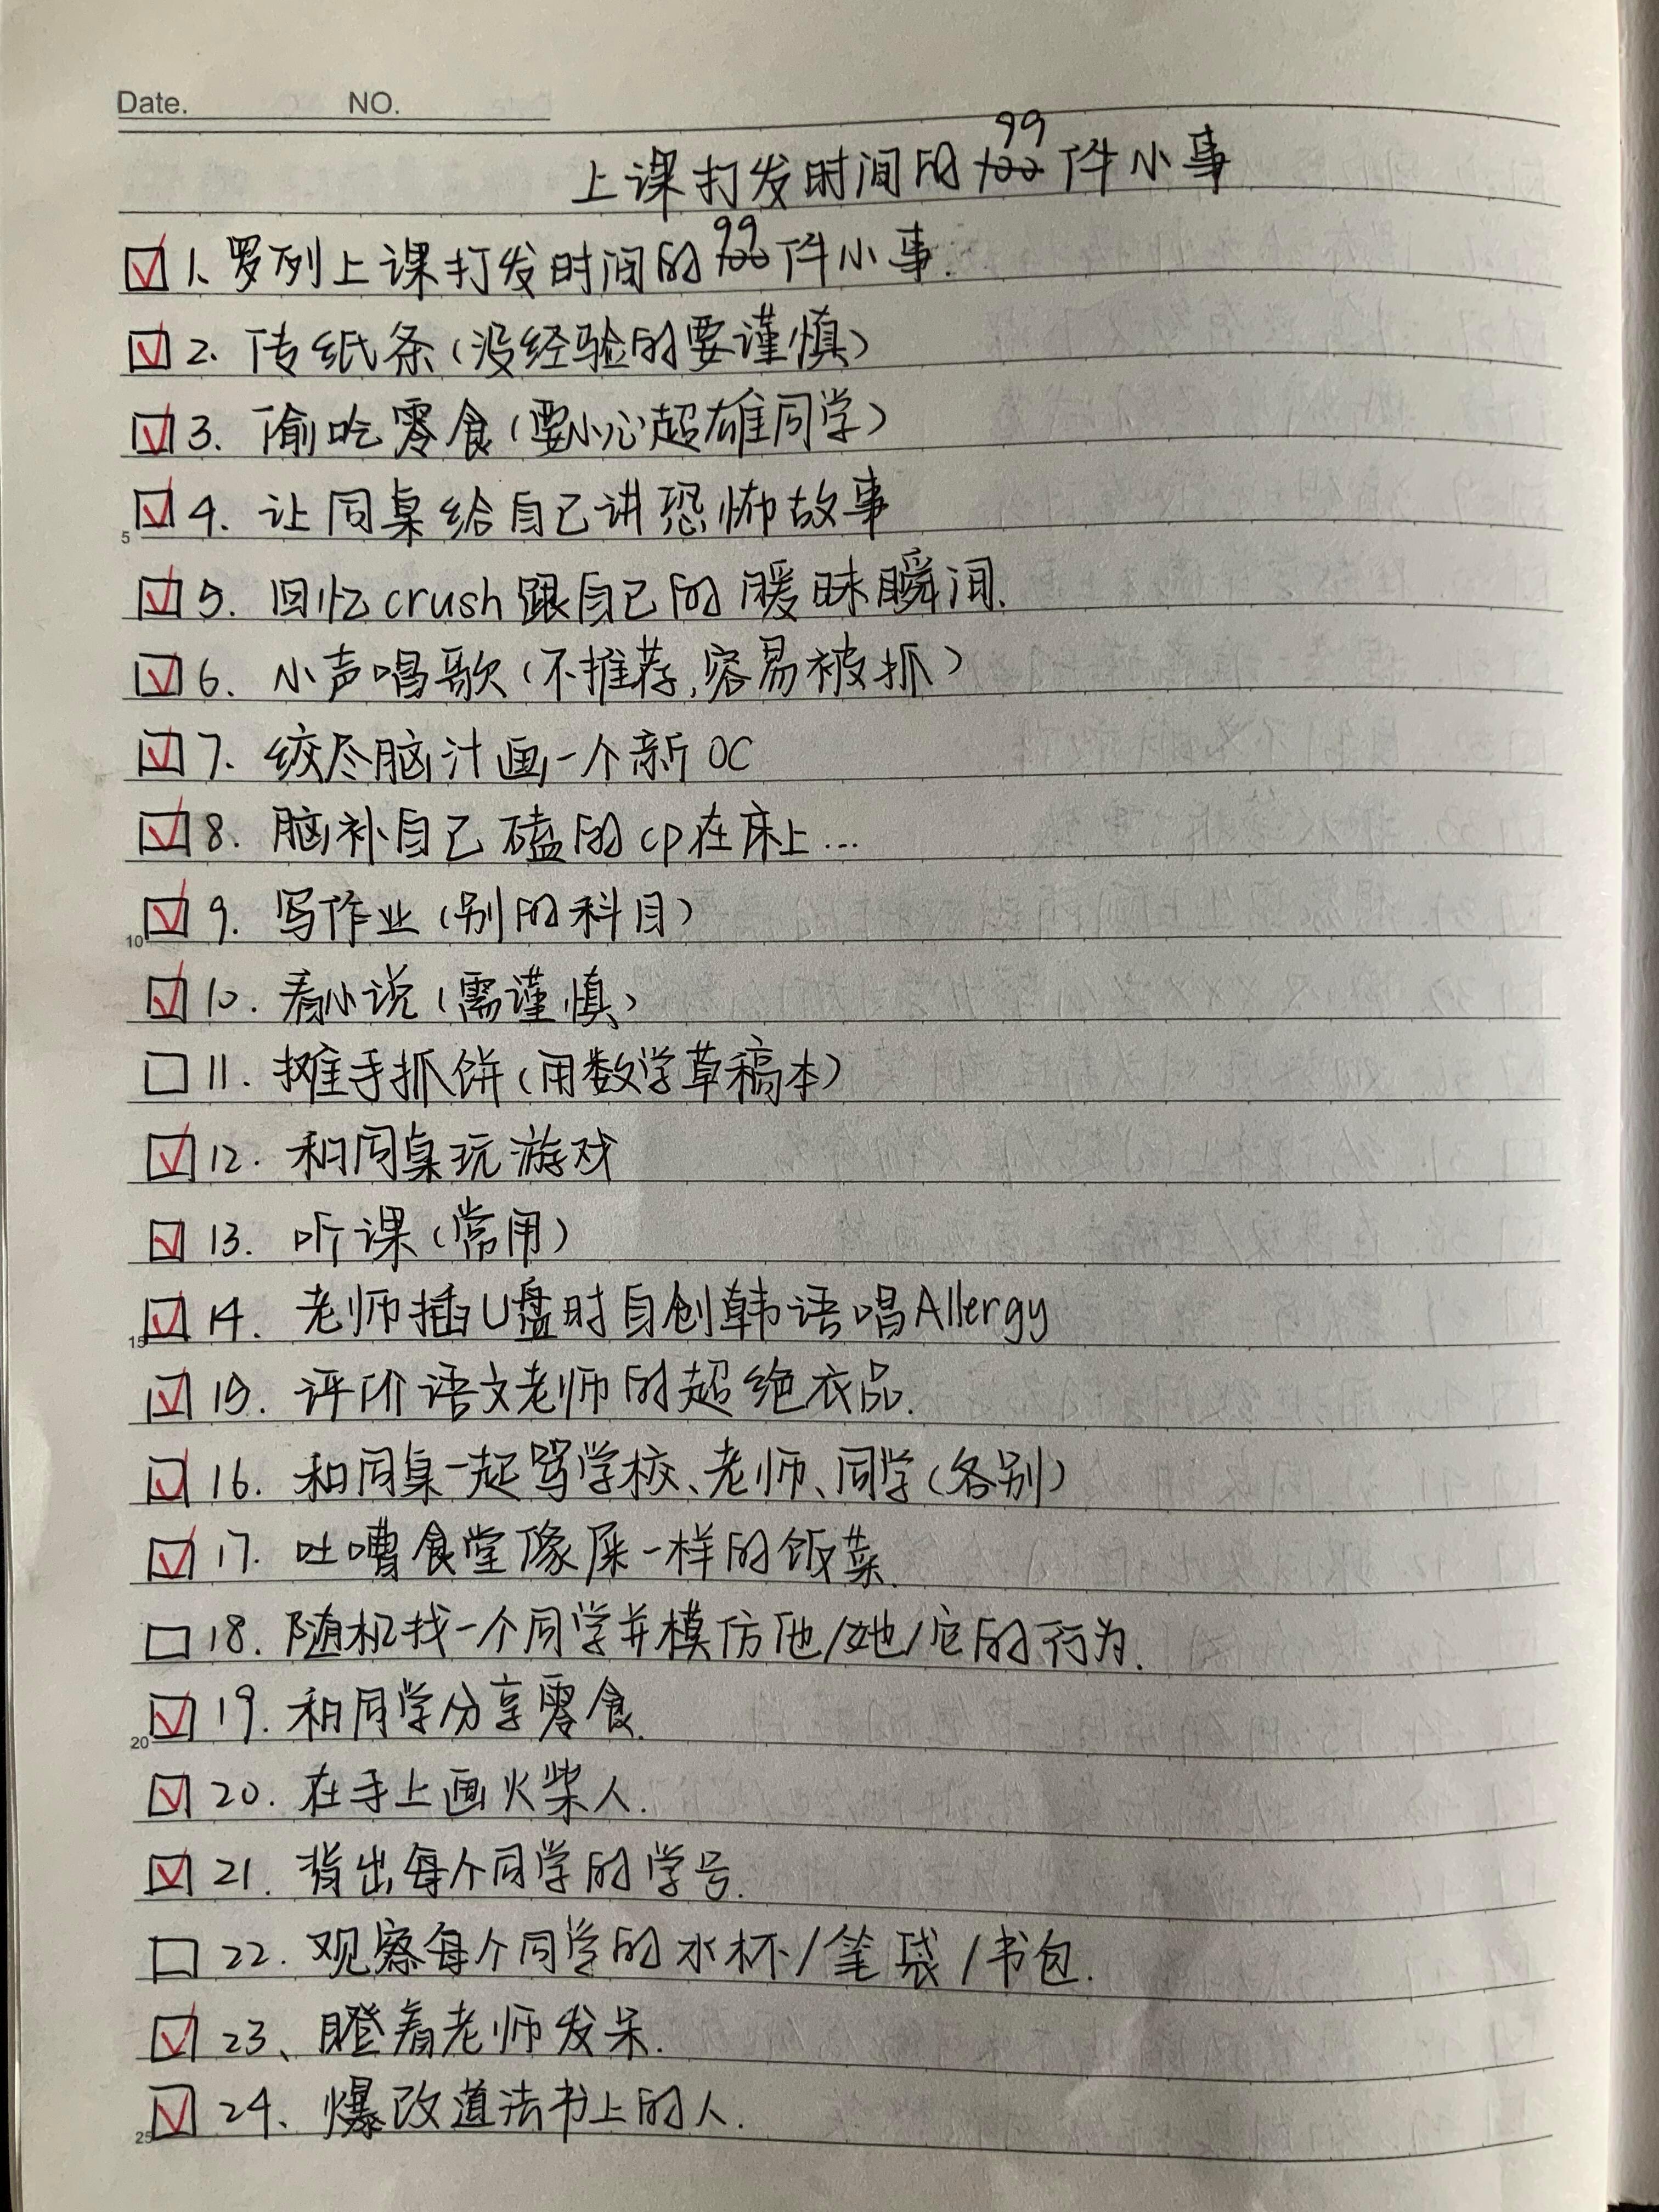 Date. NO.
上课打发时间的100 99件小事
1、罗列上课打发时间的100 99件小事.
2. 传纸条(没经验的要谨慎)
3. 偷吃零食(要小心超雄同学)
4. 让同桌给自己讲恐怖故事
5
5. 回忆crush跟自己的暧昧瞬间.
6. 小声唱歌(不推荐,容易被抓)
7. 绞尽脑汁画一个新OC
8. 脑补自己磕的cp在床上...
9. 写作业(别的科目)
10
10. 看小说(需谨慎)
11. 摊手抓饼(用数学草稿本)
12. 和同桌玩游戏
13. 听课(常用)
14. 老师插U盘时自创韩语唱Allergy
15
15. 评价语文老师的超绝衣品.
16. 和同桌一起骂学校、老师、同学(各别)
17. 吐嘈食堂像屎一样的饭菜.
18. 随机找一个同学并模仿他/她/它的行为.
19. 和同学分享零食.
20
20. 在手上画火柴人.
21. 背出每个同学的学号.
22. 观察每个同学的水杯/笔袋/书包.
23、瞪着老师发呆.
24、爆改道法书上的人.
25